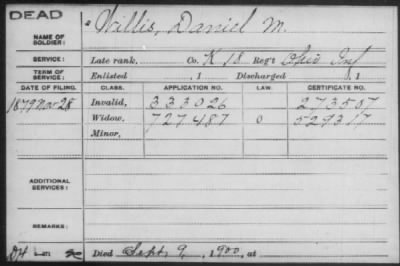 DEAD
NAME OF SOLDIER: Willis, Daniel M.
SERVICE: Late rank, Co. K 18 Reg't Ohio Inf
TERM OF SERVICE: Enlisted , 1 Discharged , 1
DATE OF FILING. CLASS. APPLICATION NO. LAW. CERTIFICATE NO.
1879 Nov 28 Invalid, 333026 273507
Widow, 727487 0 529317
Minor,
ADDITIONAL SERVICES:
REMARKS:
Died Sept. 9, 1900, at